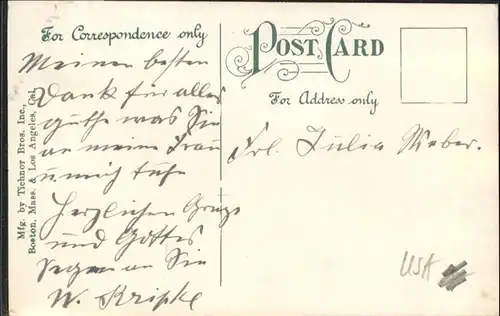 For Correspondence only
POST CARD
For Address only
Meinen besten
Dank für alles
guthe was Sie
an meine Frau
u. mich tuhe
Herzlichen Gruss
und Gottes
Segen an Sie
W. Kripke
Frl. Julia Weber.
Mfg. by Tichnor Bros. Inc.,
Boston, Mass. & Los Angeles, Cal.
USA